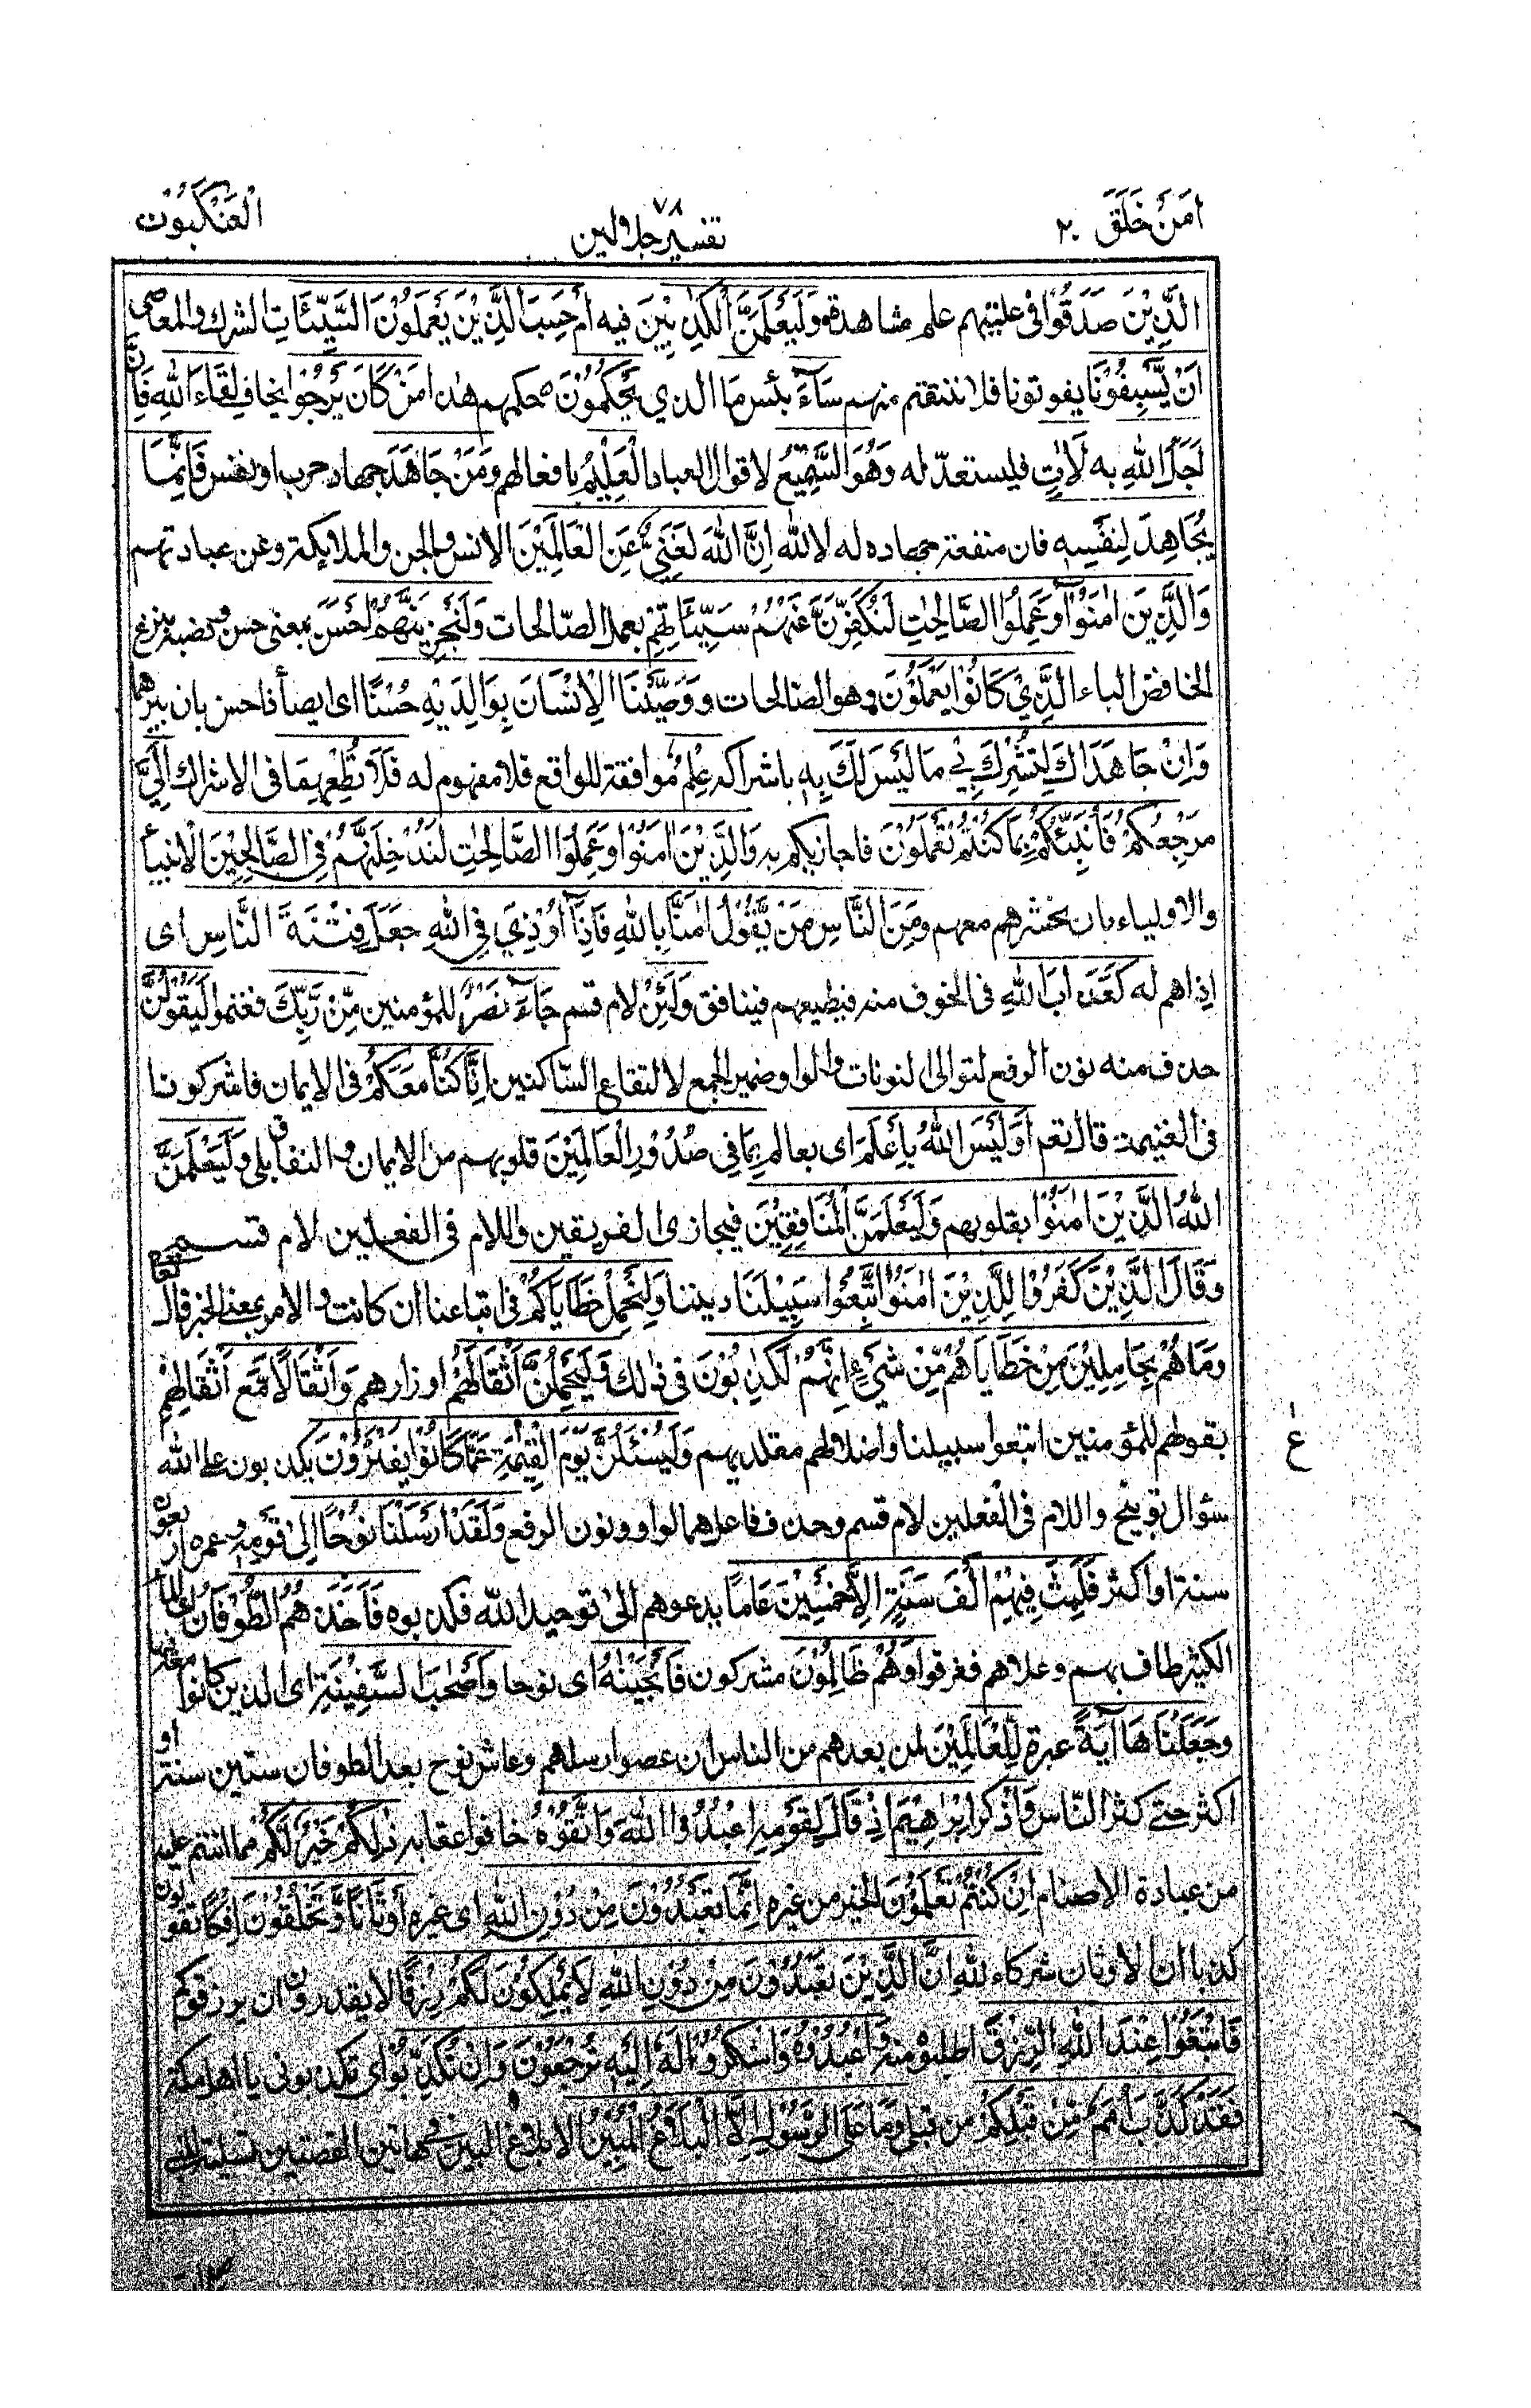 اَمَنْ خَلَقَ ٢٠
٧٨
تفسير جلالين
الْعَنْكَبُوْت
الَّذِيْنَ صَدَقُوْا فى علتيهم علم مشاهدة وَلَيَعْلَمَنَّ الْكٰذِبِيْنَ فيه اَمْ حَسِبَ الَّذِيْنَ يَعْمَلُوْنَ السَّيِّئَاتِ الشرك والمعاصى
اَنْ يَّسْبِقُوْنَا يفوتونا فلا ننتقم منهم سَآءَ بئس مَا الذي يَحْكُمُوْنَ ه حكمهم هذا مَنْ كَانَ يَرْجُوْا يخاف لِقَآءَ اللّٰهِ فَاِنَّ
اَجَلَ اللّٰهِ به لَاٰتٍ فليستعدّ له وَهُوَ السَّمِيْعُ لاقوال العباد الْعَلِيْمُ بافعالهم وَمَنْ جَاهَدَ جهاد حرب او نفس فَاِنَّمَا
يُجَاهِدُ لِنَفْسِهٖ فان منفعة جهاده له لا لله اِنَّ اللّٰهَ لَغَنِيٌّ عَنِ الْعَالَمِيْنَ الانس والجن والملايكة وعن عبادتهم
وَالَّذِيْنَ اٰمَنُوْا وَعَمِلُوا الصَّالِحٰتِ لَنُكَفِّرَنَّ عَنْهُمْ سَيِّئَاتِهِمْ بعمل الصّالحات وَلَنَجْزِيَنَّهُمْ اَحْسَنَ بمعنى حسن ونصبه بنزع
الخافض الباء الَّذِيْ كَانُوْا يَعْمَلُوْنَ وهو الصّالحات وَوَصَّيْنَا الْاِنْسَانَ بِوَالِدَيْهِ حُسْنًا اى ايصأ ذا حسن بان يبرهما
وَاِنْ جَاهَدَاكَ لِتُشْرِكَ بِيْ مَا لَيْسَ لَكَ بِهٖ باشراكه عِلْمٌ موافقة للواقع فلا مفهوم له فَلَا تُطِعْهُمَا فى الاشراك اِلَيَّ
مَرْجِعُكُمْ فَاُنَبِّئُكُمْ بِمَا كُنْتُمْ تَعْمَلُوْنَ فاجازيكم به وَالَّذِيْنَ اٰمَنُوْا وَعَمِلُوا الصَّالِحٰتِ لَنُدْخِلَنَّهُمْ فِى الصَّالِحِيْنَ الانبيأ
والاولياء بان نحشرهم معهم وَمِنَ النَّاسِ مَنْ يَّقُوْلُ اٰمَنَّا بِاللّٰهِ فَاِذَآ اُوْذِيَ فِى اللّٰهِ جَعَلَ فِتْنَةَ النَّاسِ اى
اذاهم له كَعَذَابِ اللّٰهِ فى الخوف منه فيطيعهم فينافق وَلَئِنْ لام قسم جَآءَ نَصْرٌ للمؤمنين مِّنْ رَّبِّكَ فغنموا لَيَقُوْلُنَّ
حذف منه نون الرفع لتوالى النونات والواو ضمير الجمع لالتقاء السّاكنين اِنَّا كُنَّا مَعَكُمْ فى الايمان فاشركونا
فى الغنيمة قال تعم اَوَلَيْسَ اللّٰهُ بِاَعْلَمَ اى بعالم بِمَا فِى صُدُوْرِ الْعَالَمِيْنَ قلوبهم من الايمان والنفاق بلى وَلَيَعْلَمَنَّ
اللّٰهُ الَّذِيْنَ اٰمَنُوْا بقلوبهم وَلَيَعْلَمَنَّ الْمُنَافِقِيْنَ فيجازى الفريقين واللام فى الفعلين لام قسم
وَقَالَ الَّذِيْنَ كَفَرُوْا لِلَّذِيْنَ اٰمَنُوا اتَّبِعُوْا سَبِيْلَنَا ديننا وَلْنَحْمِلْ خَطَايَاكُمْ فى اتباعنا ان كانت والامر بمعنى الخبر قال تعا
وَمَا هُمْ بِحَامِلِيْنَ مِنْ خَطَايَاهُمْ مِّنْ شَيْءٍ اِنَّهُمْ لَكٰذِبُوْنَ فى ذلك وَلَيَحْمِلُنَّ اَثْقَالَهُمْ اوزارهم وَاَثْقَالًا مَّعَ اَثْقَالِهِمْ
بقولهم للمؤمنين اتبعوا سبيلنا واضلالهم مقلديهم وَلَيُسْئَلُنَّ يَوْمَ الْقِيٰمَةِ عَمَّا كَانُوْا يَفْتَرُوْنَ يكذبون على الله
ع
سؤال توبيخ واللام فى الفعلين لام قسم وحذف فاعلهما الواو ونون الرفع وَلَقَدْ اَرْسَلْنَا نُوْحًا اِلٰى قَوْمِهٖ وعمره اربعون
سنة او اكثر فَلَبِثَ فِيْهِمْ اَلْفَ سَنَةٍ اِلَّا خَمْسِيْنَ عَامًا يدعوهم الى توحيد الله فكذبوه فَاَخَذَهُمُ الطُّوْفَانُ اى الماء
الكثير طاف بهم وعلاهم فغرقوا وَهُمْ ظَالِمُوْنَ مشركون فَاَنْجَيْنٰهُ اى نوحا وَاَصْحٰبَ السَّفِيْنَةِ اى الذين كانوا معه
وَجَعَلْنَاهَا اٰيَةً عبرة لِّلْعَالَمِيْنَ لمن بعدهم من الناس ان عصوا رسلهم وعاش نوح بعد الطوفان ستين سنة او
اكثر حتى كثر النّاس وَاذكر اِبْرٰهِيْمَ اِذْ قَالَ لِقَوْمِهِ اعْبُدُوا اللّٰهَ وَاتَّقُوْهُ خافوا عقابه ذٰلِكُمْ خَيْرٌ لَّكُمْ مما انتم عليه
من عبادة الاصنام اِنْ كُنْتُمْ تَعْلَمُوْنَ الخير من غيره اِنَّمَا تَعْبُدُوْنَ مِنْ دُوْنِ اللّٰهِ اى غيره اَوْثَانًا وَّتَخْلُقُوْنَ اِفْكًا تقولون
كذبا ان الاوثان شركاء لله اِنَّ الَّذِيْنَ تَعْبُدُوْنَ مِنْ دُوْنِ اللّٰهِ لَا يَمْلِكُوْنَ لَكُمْ رِزْقًا لا يقدرون ان يرزقوكم
فَابْتَغُوْا عِنْدَ اللّٰهِ الرِّزْقَ اطلبوه منه وَاعْبُدُوْهُ وَاشْكُرُوْا لَهٗ اِلَيْهِ تُرْجَعُوْنَ وَاِنْ تُكَذِّبُوْا اى تكذبونى يا اهل مكة
فَقَدْ كَذَّبَ اُمَمٌ مِّنْ قَبْلِكُمْ من قبلى وَمَا عَلَى الرَّسُوْلِ اِلَّا الْبَلَاغُ الْمُبِيْنُ الا بلاغ البين فى هاتين القصتين تسلية للنبى